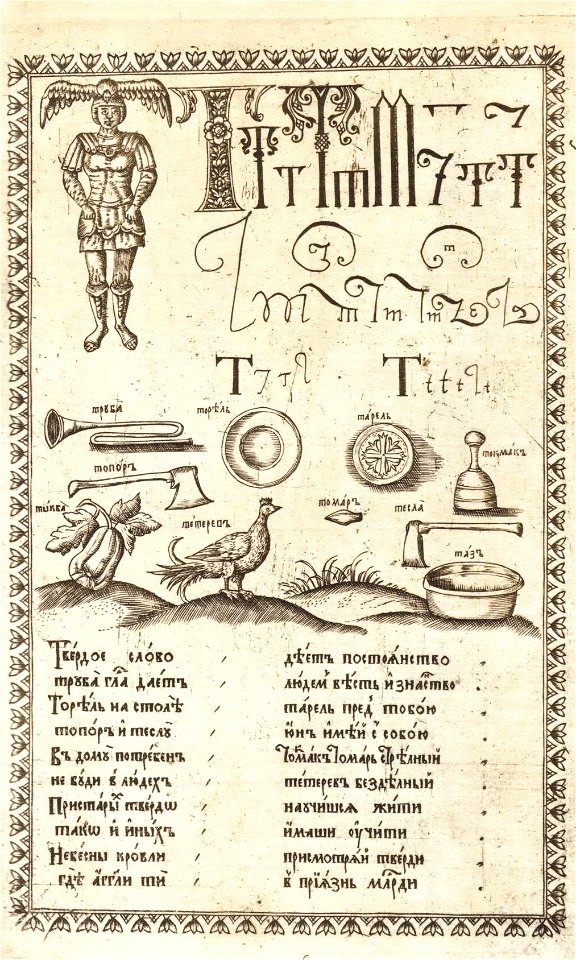 Т т Т т
труба
торѣль
тарѣль
токмакъ
топоръ
тыква
тетеревъ
томаръ
тесла
тазъ
Твердое слово дѣетъ постоянство
труба гла даетъ людемъ вѣсть и знатство
Торѣль на столѣ тарѣль пред тобою
топоръ и теслу юнъ имѣй с собою
Въ дому потребенъ Томакъ Томарь стрѣлный
не буди в людехъ тетеревъ бездѣлный
Пристарый твердѡ научишся жити
такѡ и иныхъ имаши оучити
Небесны кровли присмотряй тверди
гдѣ аггли ти в прїязнь